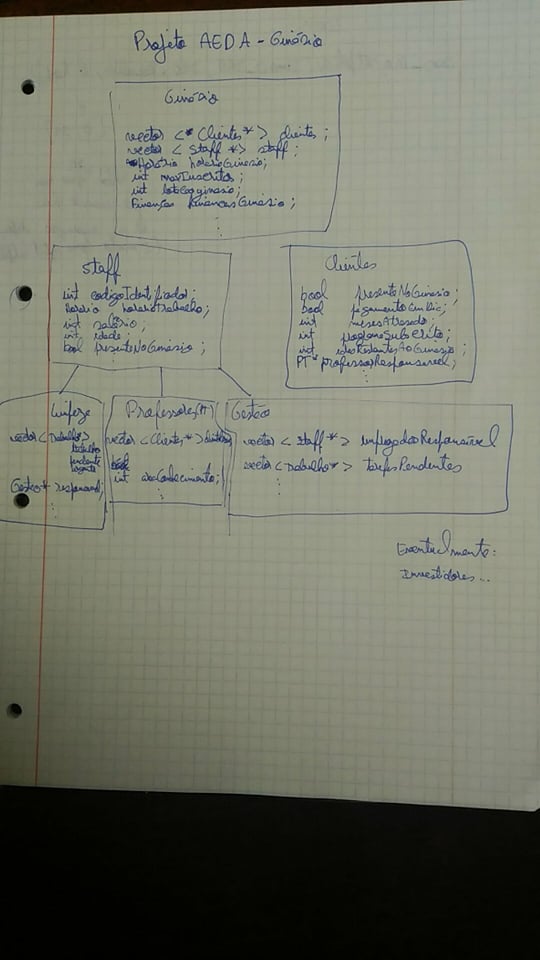 Projeto AEDA - Ginásio
Ginásio
vector <* Clientes *> clientes;
vector < Staff *> staff;
Horario horarioGinasio;
int maxInscritos;
int
Finanças financasGinásio;
⋮
Staff
int codigoIdentificador;
horário horarioTrabalho;
int salário;
int idade;
bool presenteNoGinásio;
⋮
Clientes
bool presenteNoGinasio;
bool pagamentoEmDia;
int mesesAtrasado;
int programaSubscrito;
int RestantesAoGinasio;
PT* professorResponsavel;
⋮
Limpeza
vector <Trabalho*>
trabalho
pendente
Gestão* responsavel;
⋮
Professores(PT)
vector <Clientes*>
bool
int areaConhecimento;
⋮
Gestão
vector < staff*> empregadosResponsável
vector <Trabalho*> tarefasPendentes
⋮
Eventualmente:
Investidores...